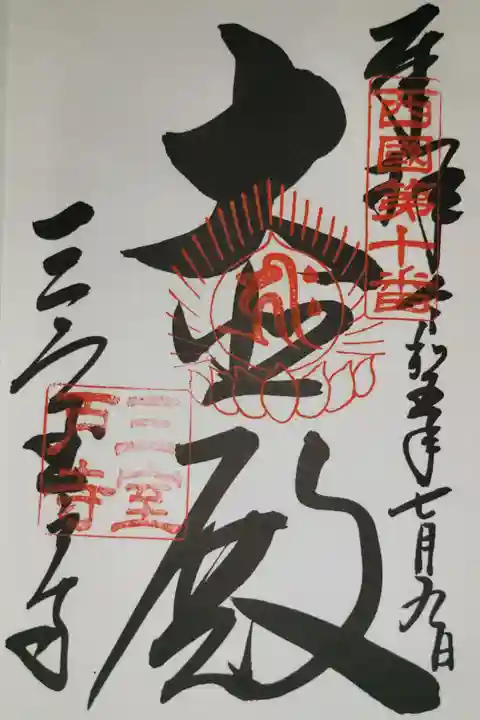 奉拝 令和五年七月九日
西國第十番
大悲殿
三室戸寺
三室戸寺